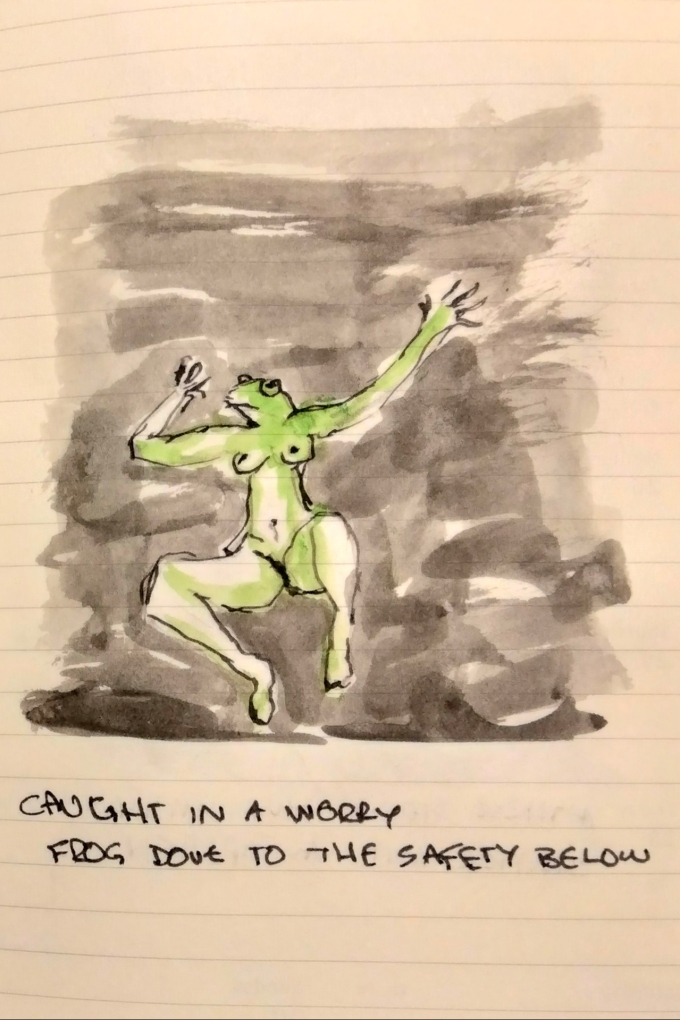 CAUGHT IN A WORRY
FROG DOVE TO THE SAFETY BELOW